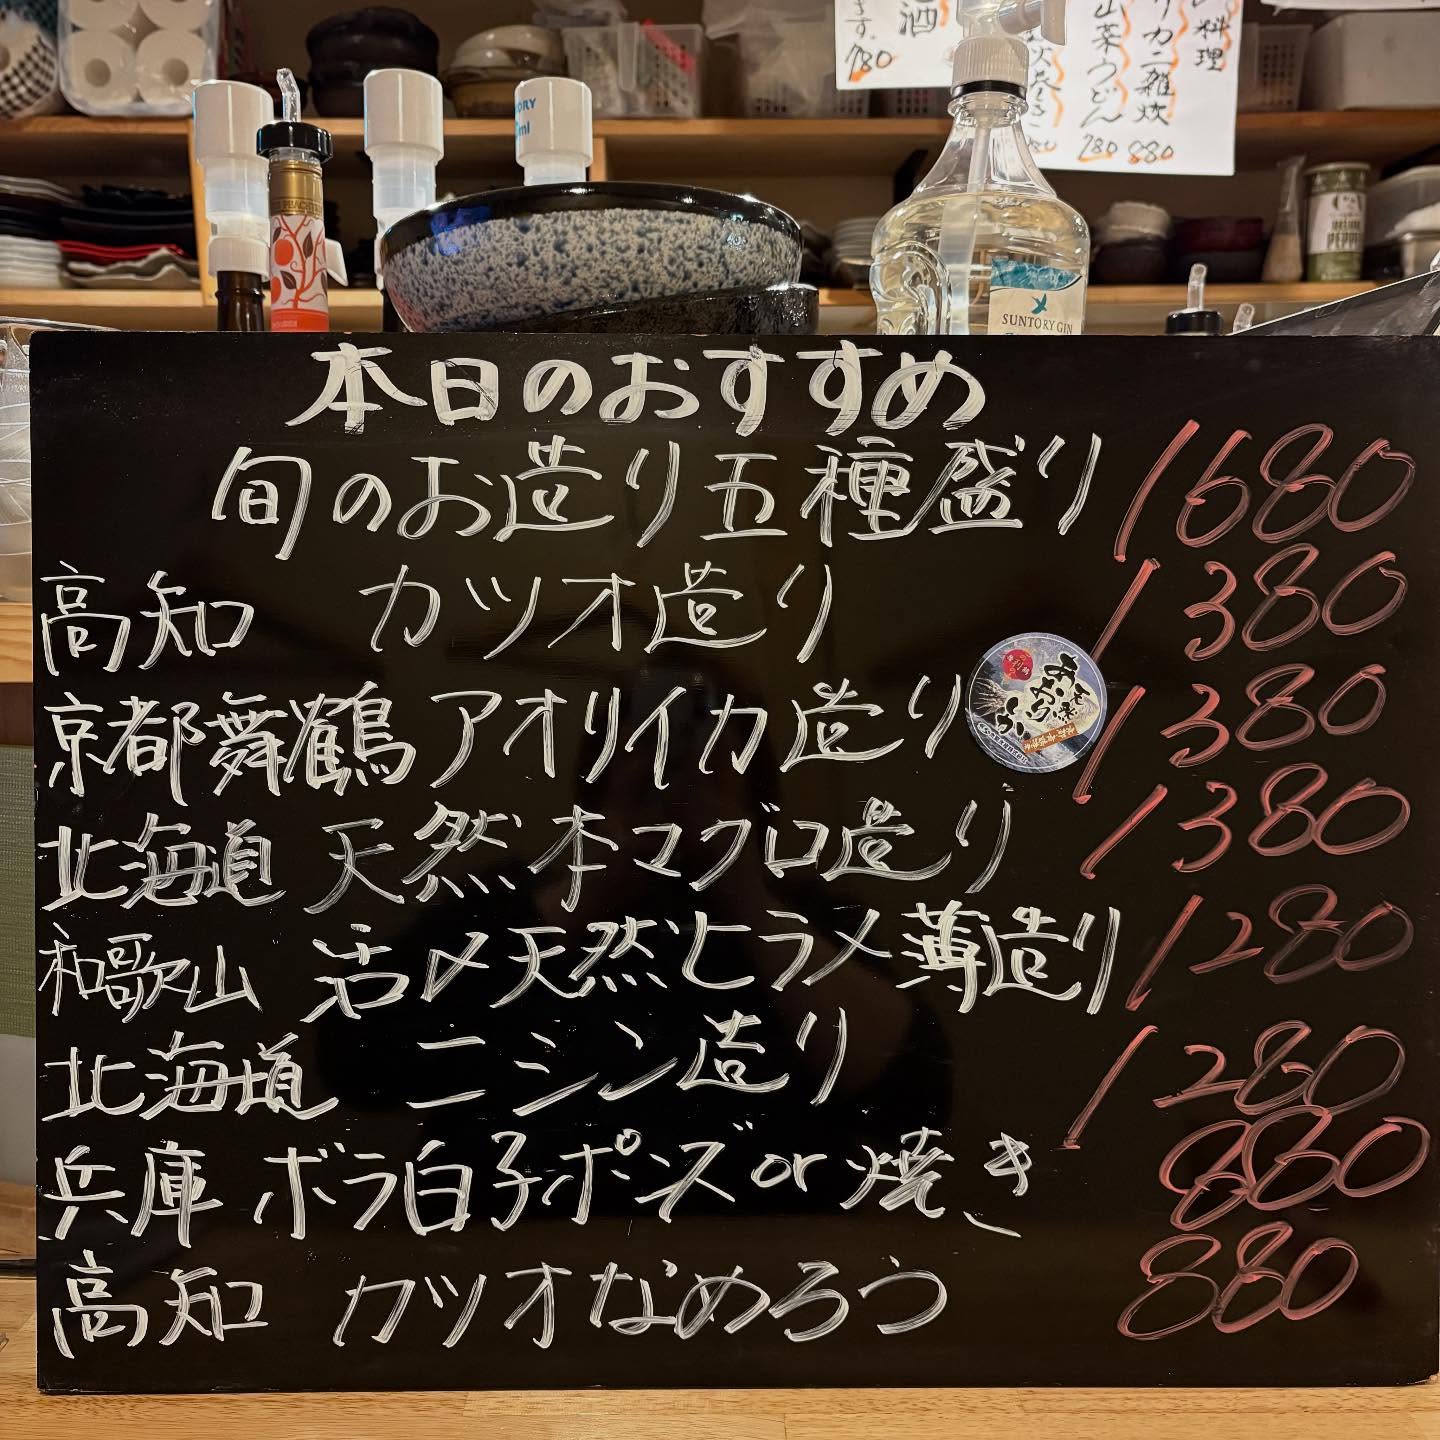 酒
ます。
780
料理
カニ雑炊
880
山菜うどん
780
ORY
ml
PEPPER
SUNTORY GIN
本日のおすすめ
旬のお造り五種盛り 1680
高知 カツオ造り 1380
京都舞鶴 アオリイカ造り 1380
北海道 天然本マグロ造り 1380
和歌山 活〆天然ヒラメ薄造り 1280
北海道 ニシン造り 1280
兵庫 ボラ白子ポンズor焼き 880
高知 カツオなめろう 880